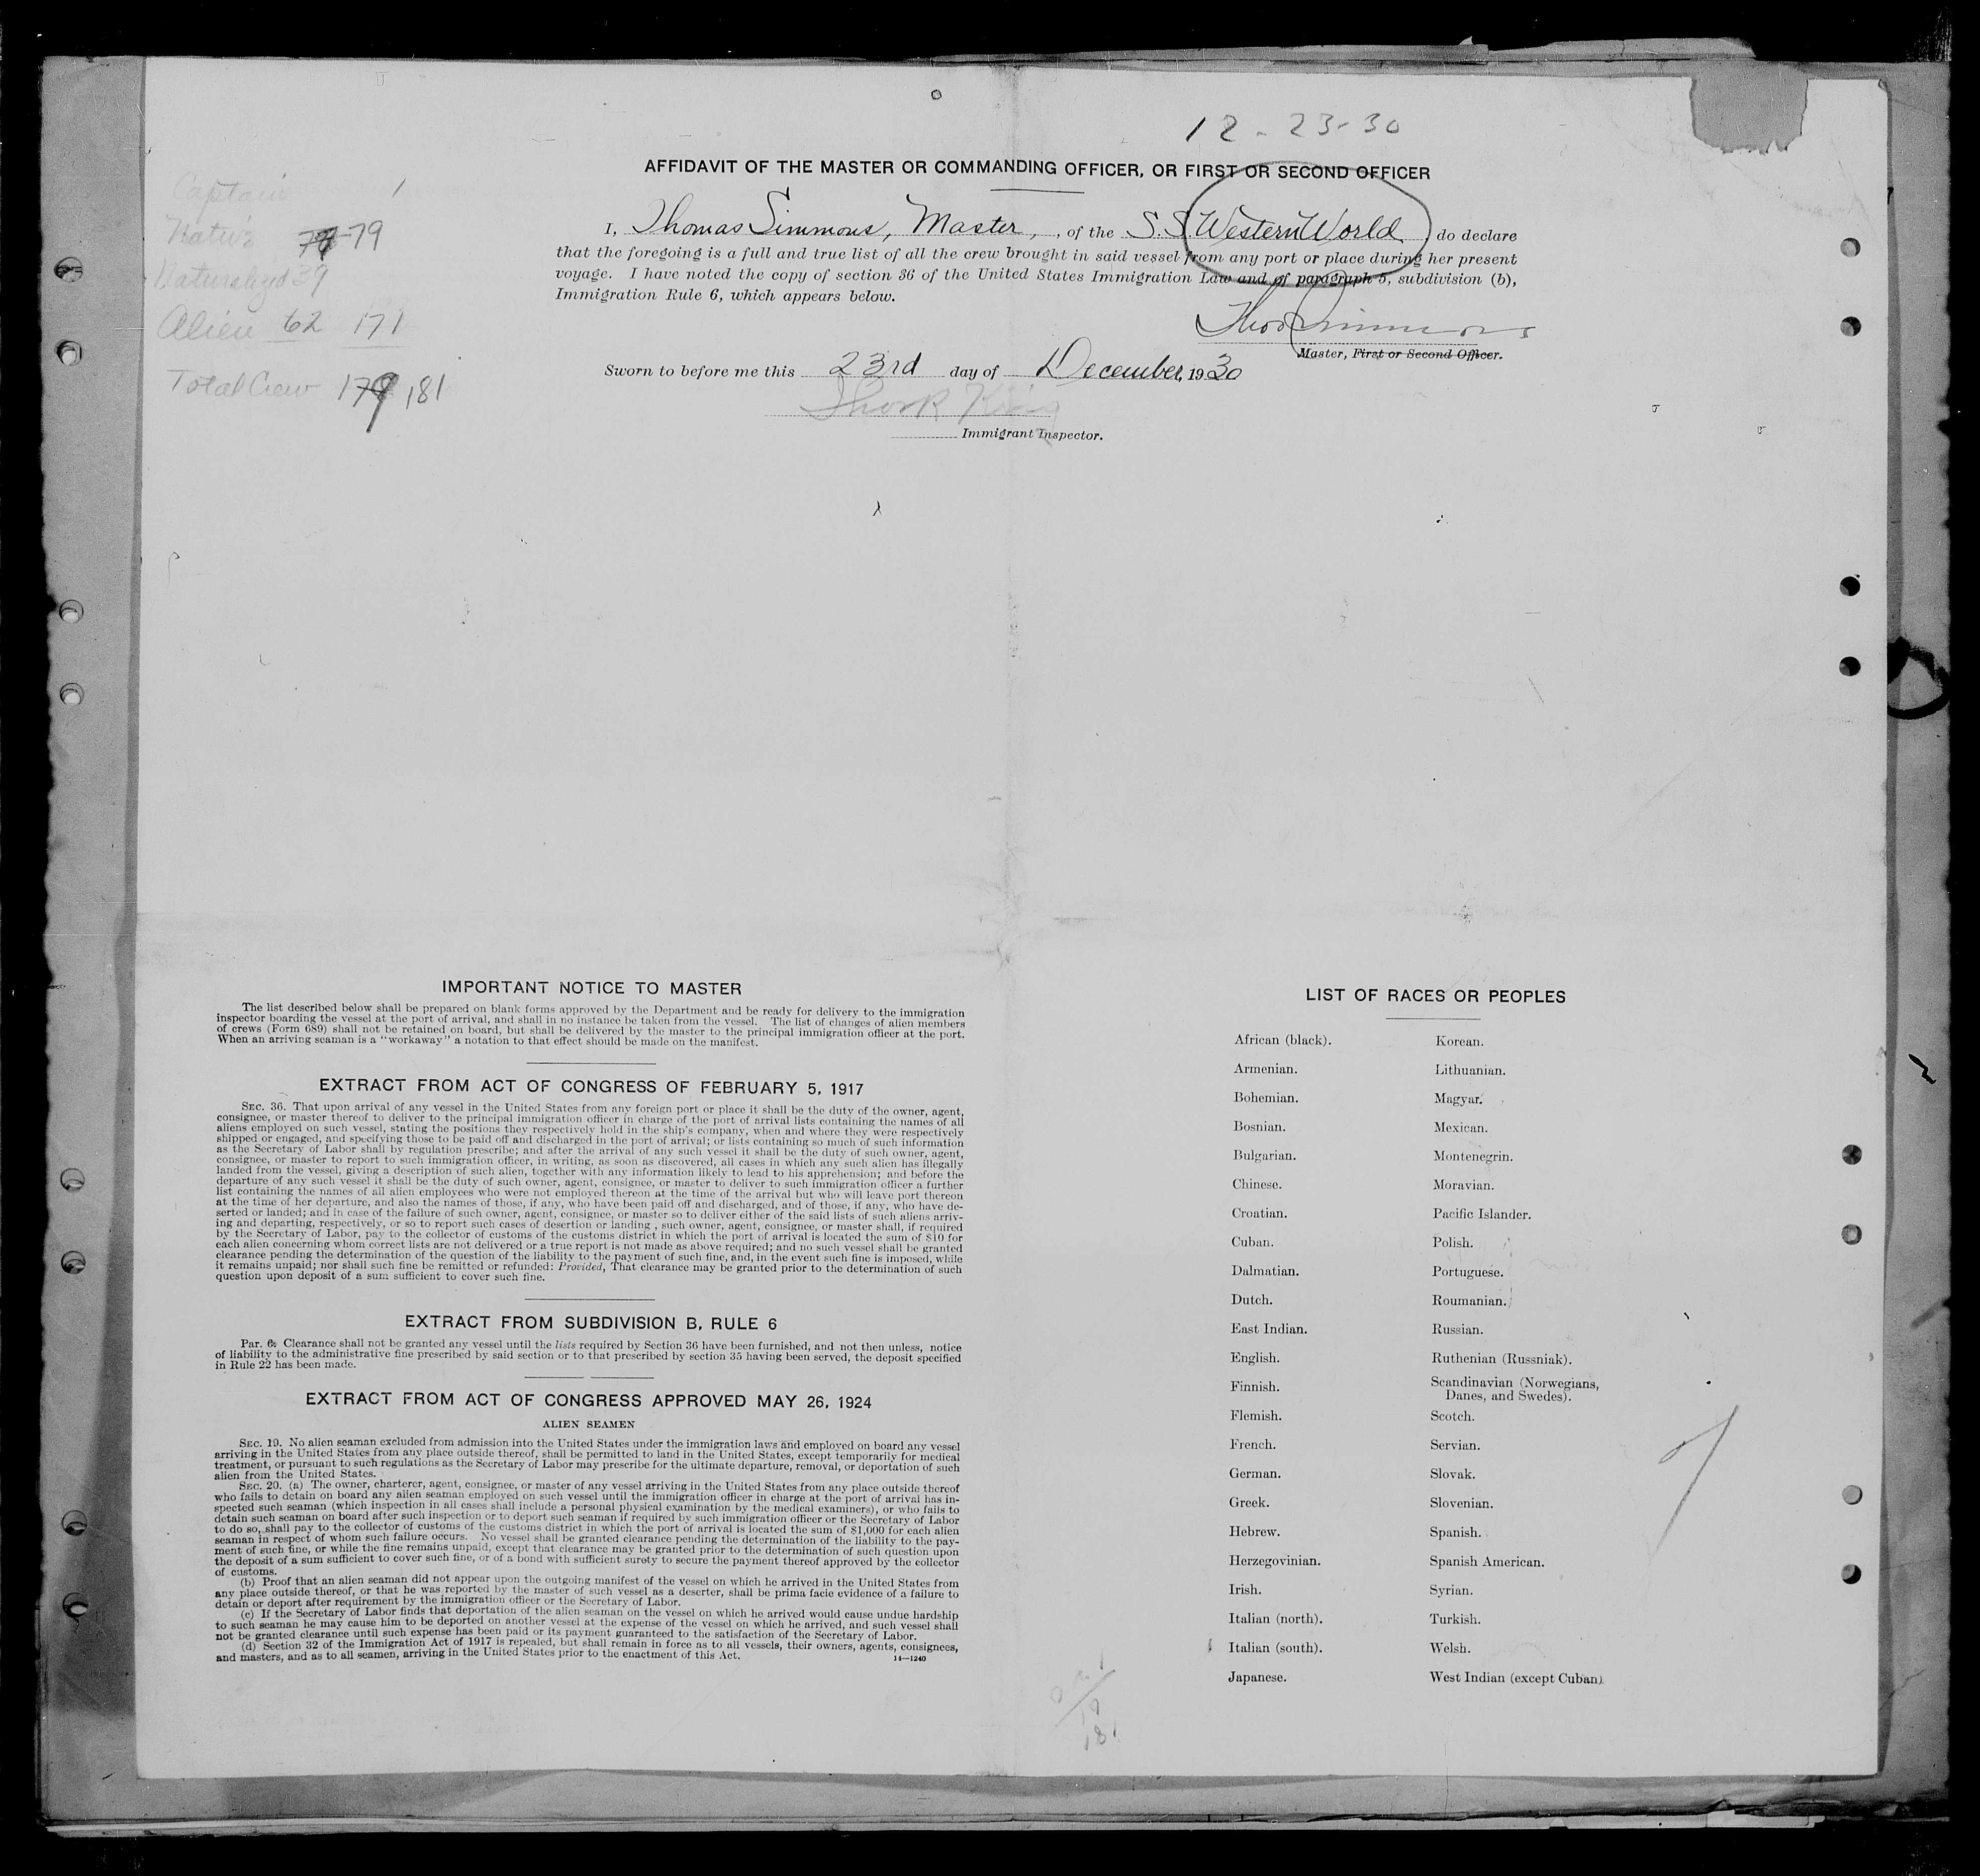 12-23-30
AFFIDAVIT OF THE MASTER OR COMMANDING OFFICER, OR FIRST OR SECOND OFFICER
Captain 1
Native 79
Naturalized 39
Alien 62 171
Total Crew 179 181
I, Thomas Simmons, Master, , of the S.S. Western World do declare
that the foregoing is a full and true list of all the crew brought in said vessel from any port or place during her present
voyage. I have noted the copy of section 36 of the United States Immigration Law and of paragraph 5, subdivision (b),
Immigration Rule 6, which appears below.
Thos Simmons
Master, First or Second Officer.
Sworn to before me this 23rd day of December, 1930
Immigrant Inspector.
IMPORTANT NOTICE TO MASTER
The list described below shall be prepared on blank forms approved by the Department and be ready for delivery to the immigration
inspector boarding the vessel at the port of arrival, and shall in no instance be taken from the vessel. The list of changes of alien members
of crews (Form 689) shall not be retained on board, but shall be delivered by the master to the principal immigration officer at the port.
When an arriving seaman is a "workaway" a notation to that effect should be made on the manifest.
EXTRACT FROM ACT OF CONGRESS OF FEBRUARY 5, 1917
SEC. 36. That upon arrival of any vessel in the United States from any foreign port or place it shall be the duty of the owner, agent,
consignee, or master thereof to deliver to the principal immigration officer in charge of the port of arrival lists containing the names of all
aliens employed on such vessel, stating the positions they respectively hold in the ship's company, when and where they were respectively
shipped or engaged, and specifying those to be paid off and discharged in the port of arrival; or lists containing so much of such information
as the Secretary of Labor shall by regulation prescribe; and after the arrival of any such vessel it shall be the duty of such owner, agent,
consignee, or master to report to such immigration officer, in writing, as soon as discovered, all cases in which any such alien has illegally
landed from the vessel, giving a description of such alien, together with any information likely to lead to his apprehension; and before the
departure of any such vessel it shall be the duty of such owner, agent, consignee, or master to deliver to such immigration officer a further
list containing the names of all alien employees who were not employed thereon at the time of the arrival but who will leave port thereon
at the time of her departure, and also the names of those, if any, who have been paid off and discharged, and of those, if any, who have de-
serted or landed; and in case of the failure of such owner, agent, consignee, or master so to deliver either of the said lists of such aliens arriv-
ing and departing, respectively, or so to report such cases of desertion or landing , such owner, agent, consignee, or master shall, if required
by the Secretary of Labor, pay to the collector of customs of the customs district in which the port of arrival is located the sum of $10 for
each alien concerning whom correct lists are not delivered or a true report is not made as above required; and no such vessel shall be granted
clearance pending the determination of the question of the liability to the payment of such fine, and, in the event such fine is imposed, while
it remains unpaid; nor shall such fine be remitted or refunded: Provided, That clearance may be granted prior to the determination of such
question upon deposit of a sum sufficient to cover such fine.
EXTRACT FROM SUBDIVISION B, RULE 6
Par. 6. Clearance shall not be granted any vessel until the lists required by Section 36 have been furnished, and not then unless, notice
of liability to the administrative fine prescribed by said section or to that prescribed by section 35 having been served, the deposit specified
in Rule 22 has been made.
EXTRACT FROM ACT OF CONGRESS APPROVED MAY 26, 1924
ALIEN SEAMEN
SEC. 19. No alien seaman excluded from admission into the United States under the immigration laws and employed on board any vessel
arriving in the United States from any place outside thereof, shall be permitted to land in the United States, except temporarily for medical
treatment, or pursuant to such regulations as the Secretary of Labor may prescribe for the ultimate departure, removal, or deportation of such
alien from the United States.
SEC. 20. (a) The owner, charterer, agent, consignee, or master of any vessel arriving in the United States from any place outside thereof
who fails to detain on board any alien seaman employed on such vessel until the immigration officer in charge at the port of arrival has in-
spected such seaman (which inspection in all cases shall include a personal physical examination by the medical examiners), or who fails to
detain such seaman on board after such inspection or to deport such seaman if required by such immigration officer or the Secretary of Labor
to do so, shall pay to the collector of customs of the customs district in which the port of arrival is located the sum of $1,000 for each alien
seaman in respect of whom such failure occurs. No vessel shall be granted clearance pending the determination of the liability to the pay-
ment of such fine, or while the fine remains unpaid, except that clearance may be granted prior to the determination of such question upon
the deposit of a sum sufficient to cover such fine, or of a bond with sufficient surety to secure the payment thereof approved by the collector
of customs.
(b) Proof that an alien seaman did not appear upon the outgoing manifest of the vessel on which he arrived in the United States from
any place outside thereof, or that he was reported by the master of such vessel as a deserter, shall be prima facie evidence of a failure to
detain or deport after requirement by the immigration officer or the Secretary of Labor.
(c) If the Secretary of Labor finds that deportation of the alien seaman on the vessel on which he arrived would cause undue hardship
to such seaman he may cause him to be deported on another vessel at the expense of the vessel on which he arrived, and such vessel shall
not be granted clearance until such expense has been paid or its payment guaranteed to the satisfaction of the Secretary of Labor.
(d) Section 32 of the Immigration Act of 1917 is repealed, but shall remain in force as to all vessels, their owners, agents, consignees,
and masters, and as to all seamen, arriving in the United States prior to the enactment of this Act.
14—1240
LIST OF RACES OR PEOPLES
African (black). Korean.
Armenian. Lithuanian.
Bohemian. Magyar.
Bosnian. Mexican.
Bulgarian. Montenegrin.
Chinese. Moravian.
Croatian. Pacific Islander.
Cuban. Polish.
Dalmatian. Portuguese.
Dutch. Roumanian.
East Indian. Russian.
English. Ruthenian (Russniak).
Finnish. Scandinavian (Norwegians,
Danes, and Swedes).
Flemish. Scotch.
French. Servian.
German. Slovak.
Greek. Slovenian.
Hebrew. Spanish.
Herzegovinian. Spanish American.
Irish. Syrian.
Italian (north). Turkish.
Italian (south). Welsh.
Japanese. West Indian (except Cuban).